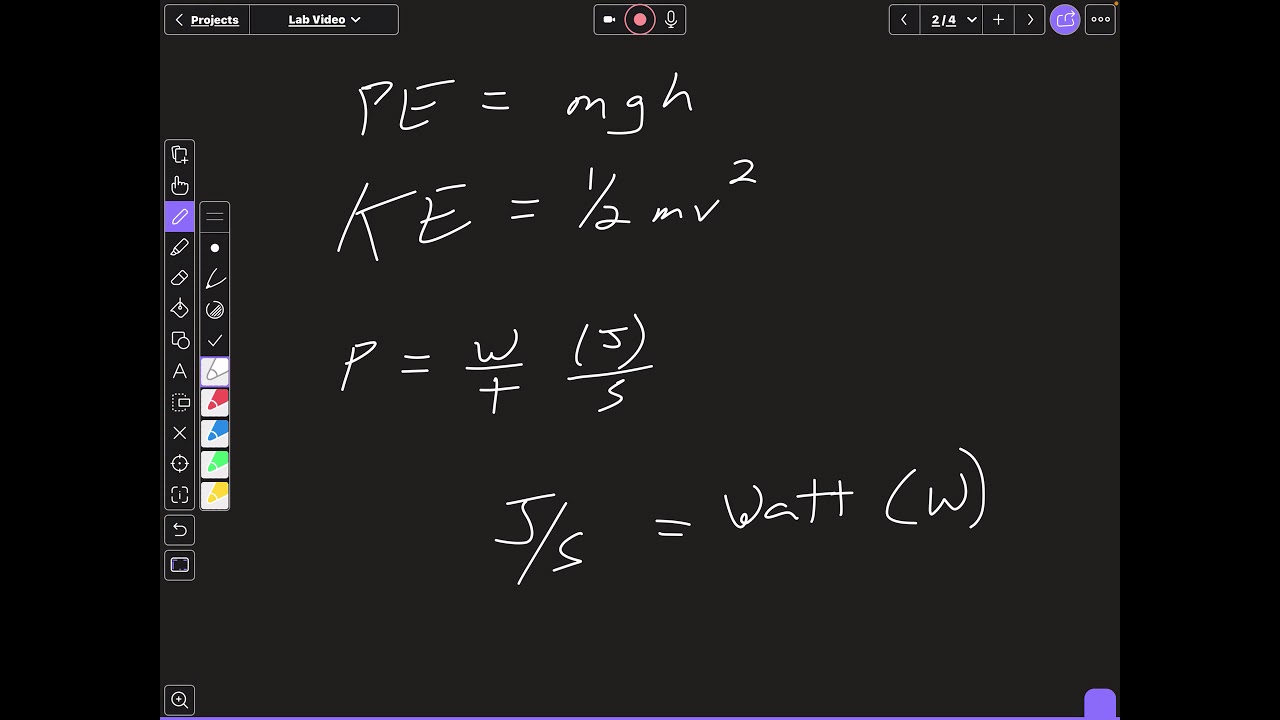 Projects
Lab Video
2/4
PE = mgh
KE = 1/2 mv²
P = W/t (J)/s
J/s = Watt (W)
A